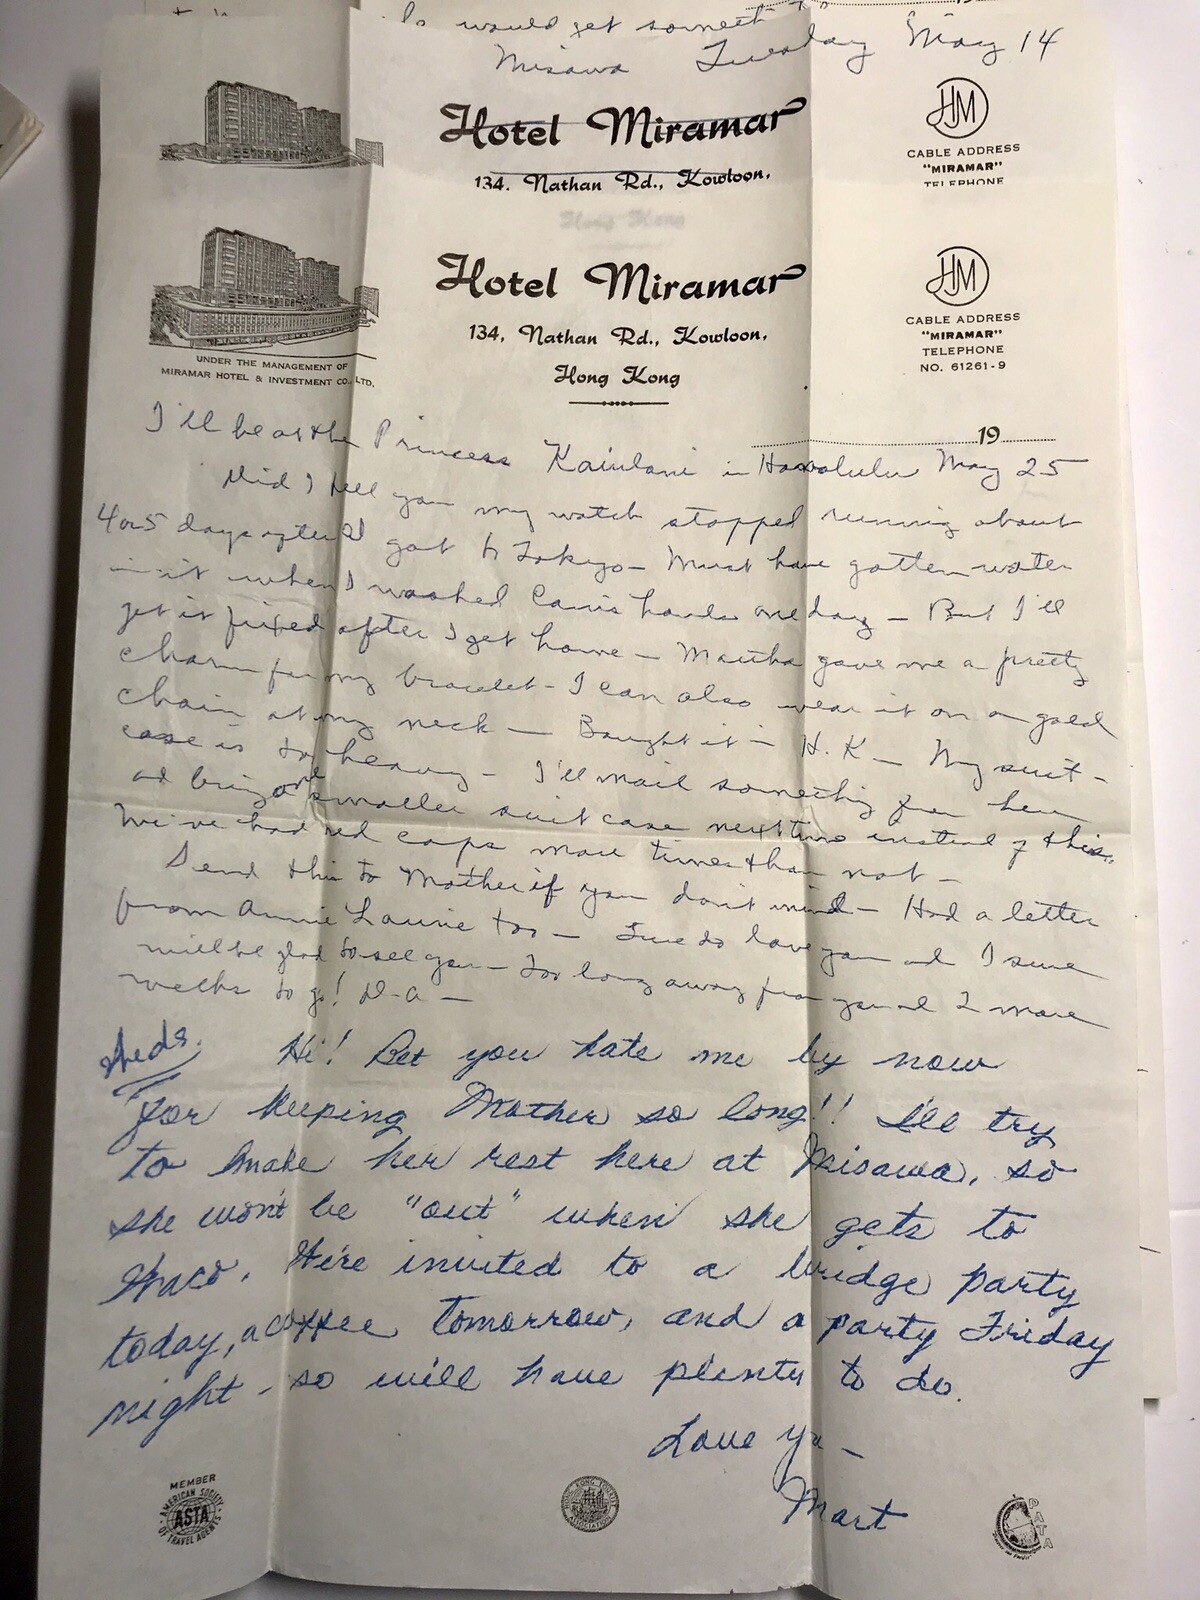 would get
Misawa Tuesday May 14
Hotel Miramar
134. Nathan Rd., Kowloon,
HM
CABLE ADDRESS
"MIRAMAR"
TELEPHONE
Hong Kong
Hotel Miramar
134, Nathan Rd., Kowloon,
Hong Kong
UNDER THE MANAGEMENT OF
MIRAMAR HOTEL & INVESTMENT CO., LTD.
HM
CABLE ADDRESS
"MIRAMAR"
TELEPHONE
NO. 61261-9
19
I'll be at the Princess Kaiulani in Honolulu May 25
Did I tell you my watch stopped running about
4 or 5 days after I got to Tokyo - Must have gotten water
in it when I washed hands one day - But I'll
get it fixed after I get home - Martha gave me a pretty
charm for my bracelet - I can also wear it on a gold
chain at my neck - Bought it in H.K - My suit-
case is so heavy - I'll mail something from here
and bring one smaller suit case next time instead of this.
We've had red caps more times than not -
Send this to Mother if you don't mind - Had a letter
from Annie Laurie too - I do love you and I sure
will be glad to see you - Too long away from you and 2 more
weeks to go! D-A -
Hi! Bet you hate me by now
for keeping Mother so long!! I'll try
to make her rest here at Misawa, so
she won't be "out" when she gets to
Waco. We're invited to a bridge party
today, a coffee tomorrow, and a party Friday
night - so will have plenty to do.
Love ya -
Mart
MEMBER
AMERICAN SOCIETY
ASTA
OF TRAVEL AGENTS
HONG KONG TOURIST
ASSOCIATION
PATA